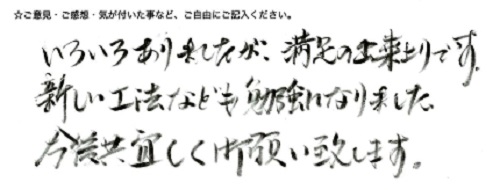 ☆ご意見・ご感想・気が付いた事など、ご自由にご記入ください。
いろいろありましたが、満足の出来上りです。
新しい工法なども勉強になりました
今後共宜しく御願い致します。